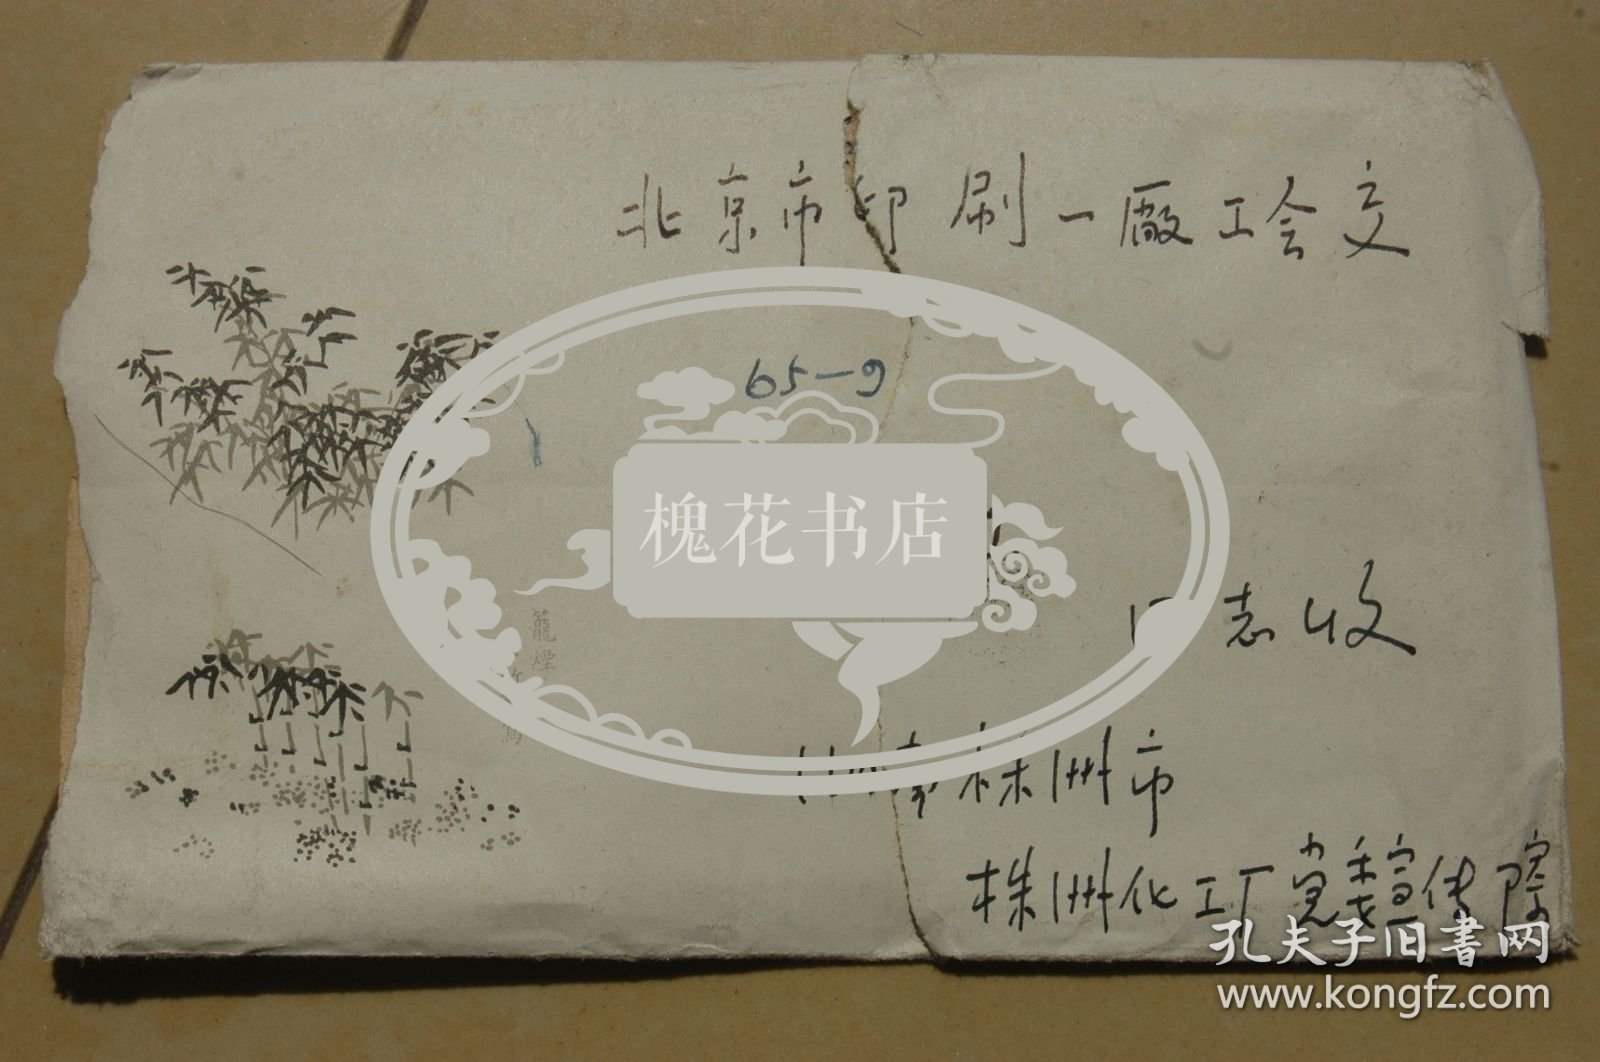 北京市印刷一廠工会交
65-9
槐花书店
志收
籠煙
株洲市
株洲化工厂党委宣传
孔夫子旧書网
www.kongfz.com